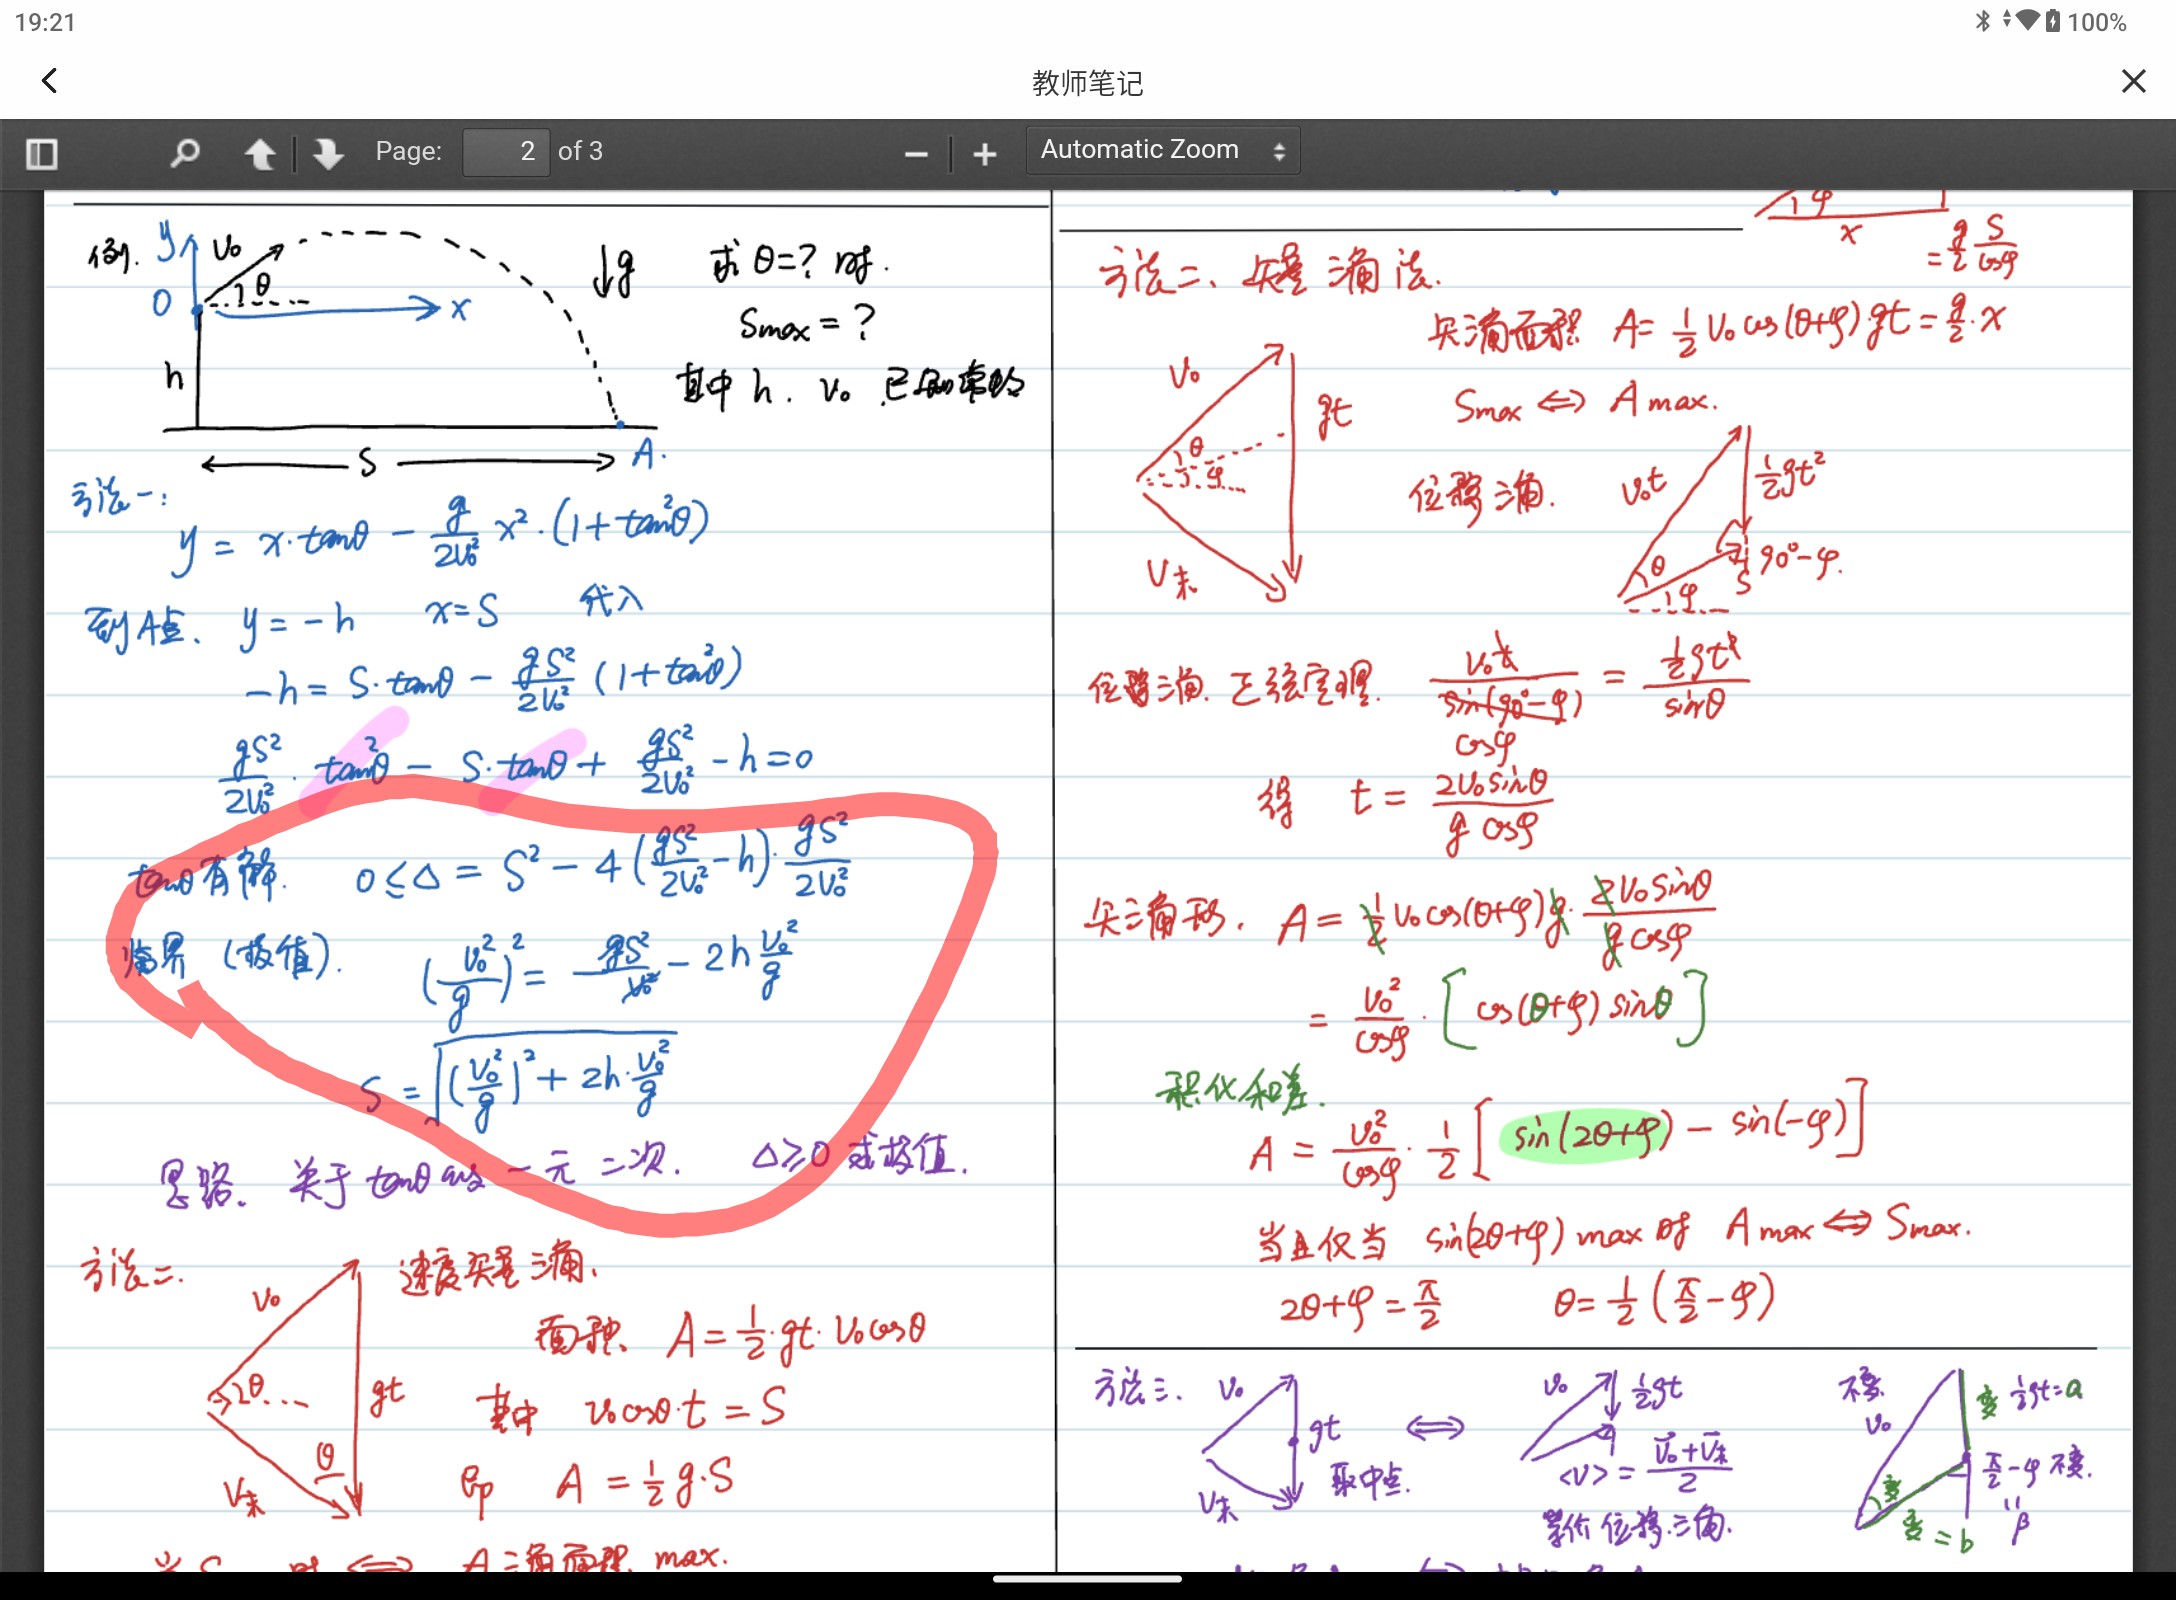 19:21
100%
教师笔记
Page: 2 of 3
Automatic Zoom
例. y v₀ θ O x ↓g 求 θ=? 时.
Smax = ?
h 其中 h. v₀ 已知常数
S A.
方法一:
y = x·tanθ − g/2v₀² x²·(1+tan²θ)
到A点. y = −h x=S 代入
−h = S·tanθ − gS²/2v₀² (1+tan²θ)
gS²/2v₀² · tan²θ − S·tanθ + gS²/2v₀² − h = 0
tanθ有解. 0 ≤ Δ = S² − 4(gS²/2v₀² − h)·gS²/2v₀²
临界(极值). (v₀²/g)² = gS²/v₀² − 2h v₀²/g
S = √((v₀²/g)² + 2h·v₀²/g)
思路. 关于tanθ的一元二次. Δ≥0 求极值.
方法二. v₀ 速度矢量三角.
面积. A = 1/2·gt·v₀cosθ
θ gt
其中 v₀cosθ·t = S
θ
v末 即 A = 1/2 g·S
A三角面积 max.
φ x = g/2 S/cosφ
方法二、矢量三角法.
矢三角面积 A = 1/2 v₀cos(θ+φ)gt = g/2·x
v₀ θ φ gt v末
Smax ⇔ Amax.
位移三角. v₀t 1/2gt² θ φ S 90°−φ.
位移三角. 正弦定理. v₀t/sin(90°−φ) = 1/2gt²/sinθ
cosφ
得 t = 2v₀sinθ/g cosφ
矢三角形. A = 1/2 v₀cos(θ+φ)g·2v₀sinθ/g cosφ
= v₀²/cosφ·[cos(θ+φ)sinθ]
积化和差.
A = v₀²/cosφ·1/2[sin(2θ+φ) − sin(−φ)]
当且仅当 sin(2θ+φ) max 时 Amax ⇔ Smax.
2θ+φ = π/2 θ = 1/2(π/2−φ)
方法三. v₀ gt 取中点. v末 ⇔ v₀ 1/2gt
<v> = (v₀+v末)/2
等价位移三角.
不变. v₀ 变 1/2gt=a
π/2−φ 不变.
变
变 = b
= β